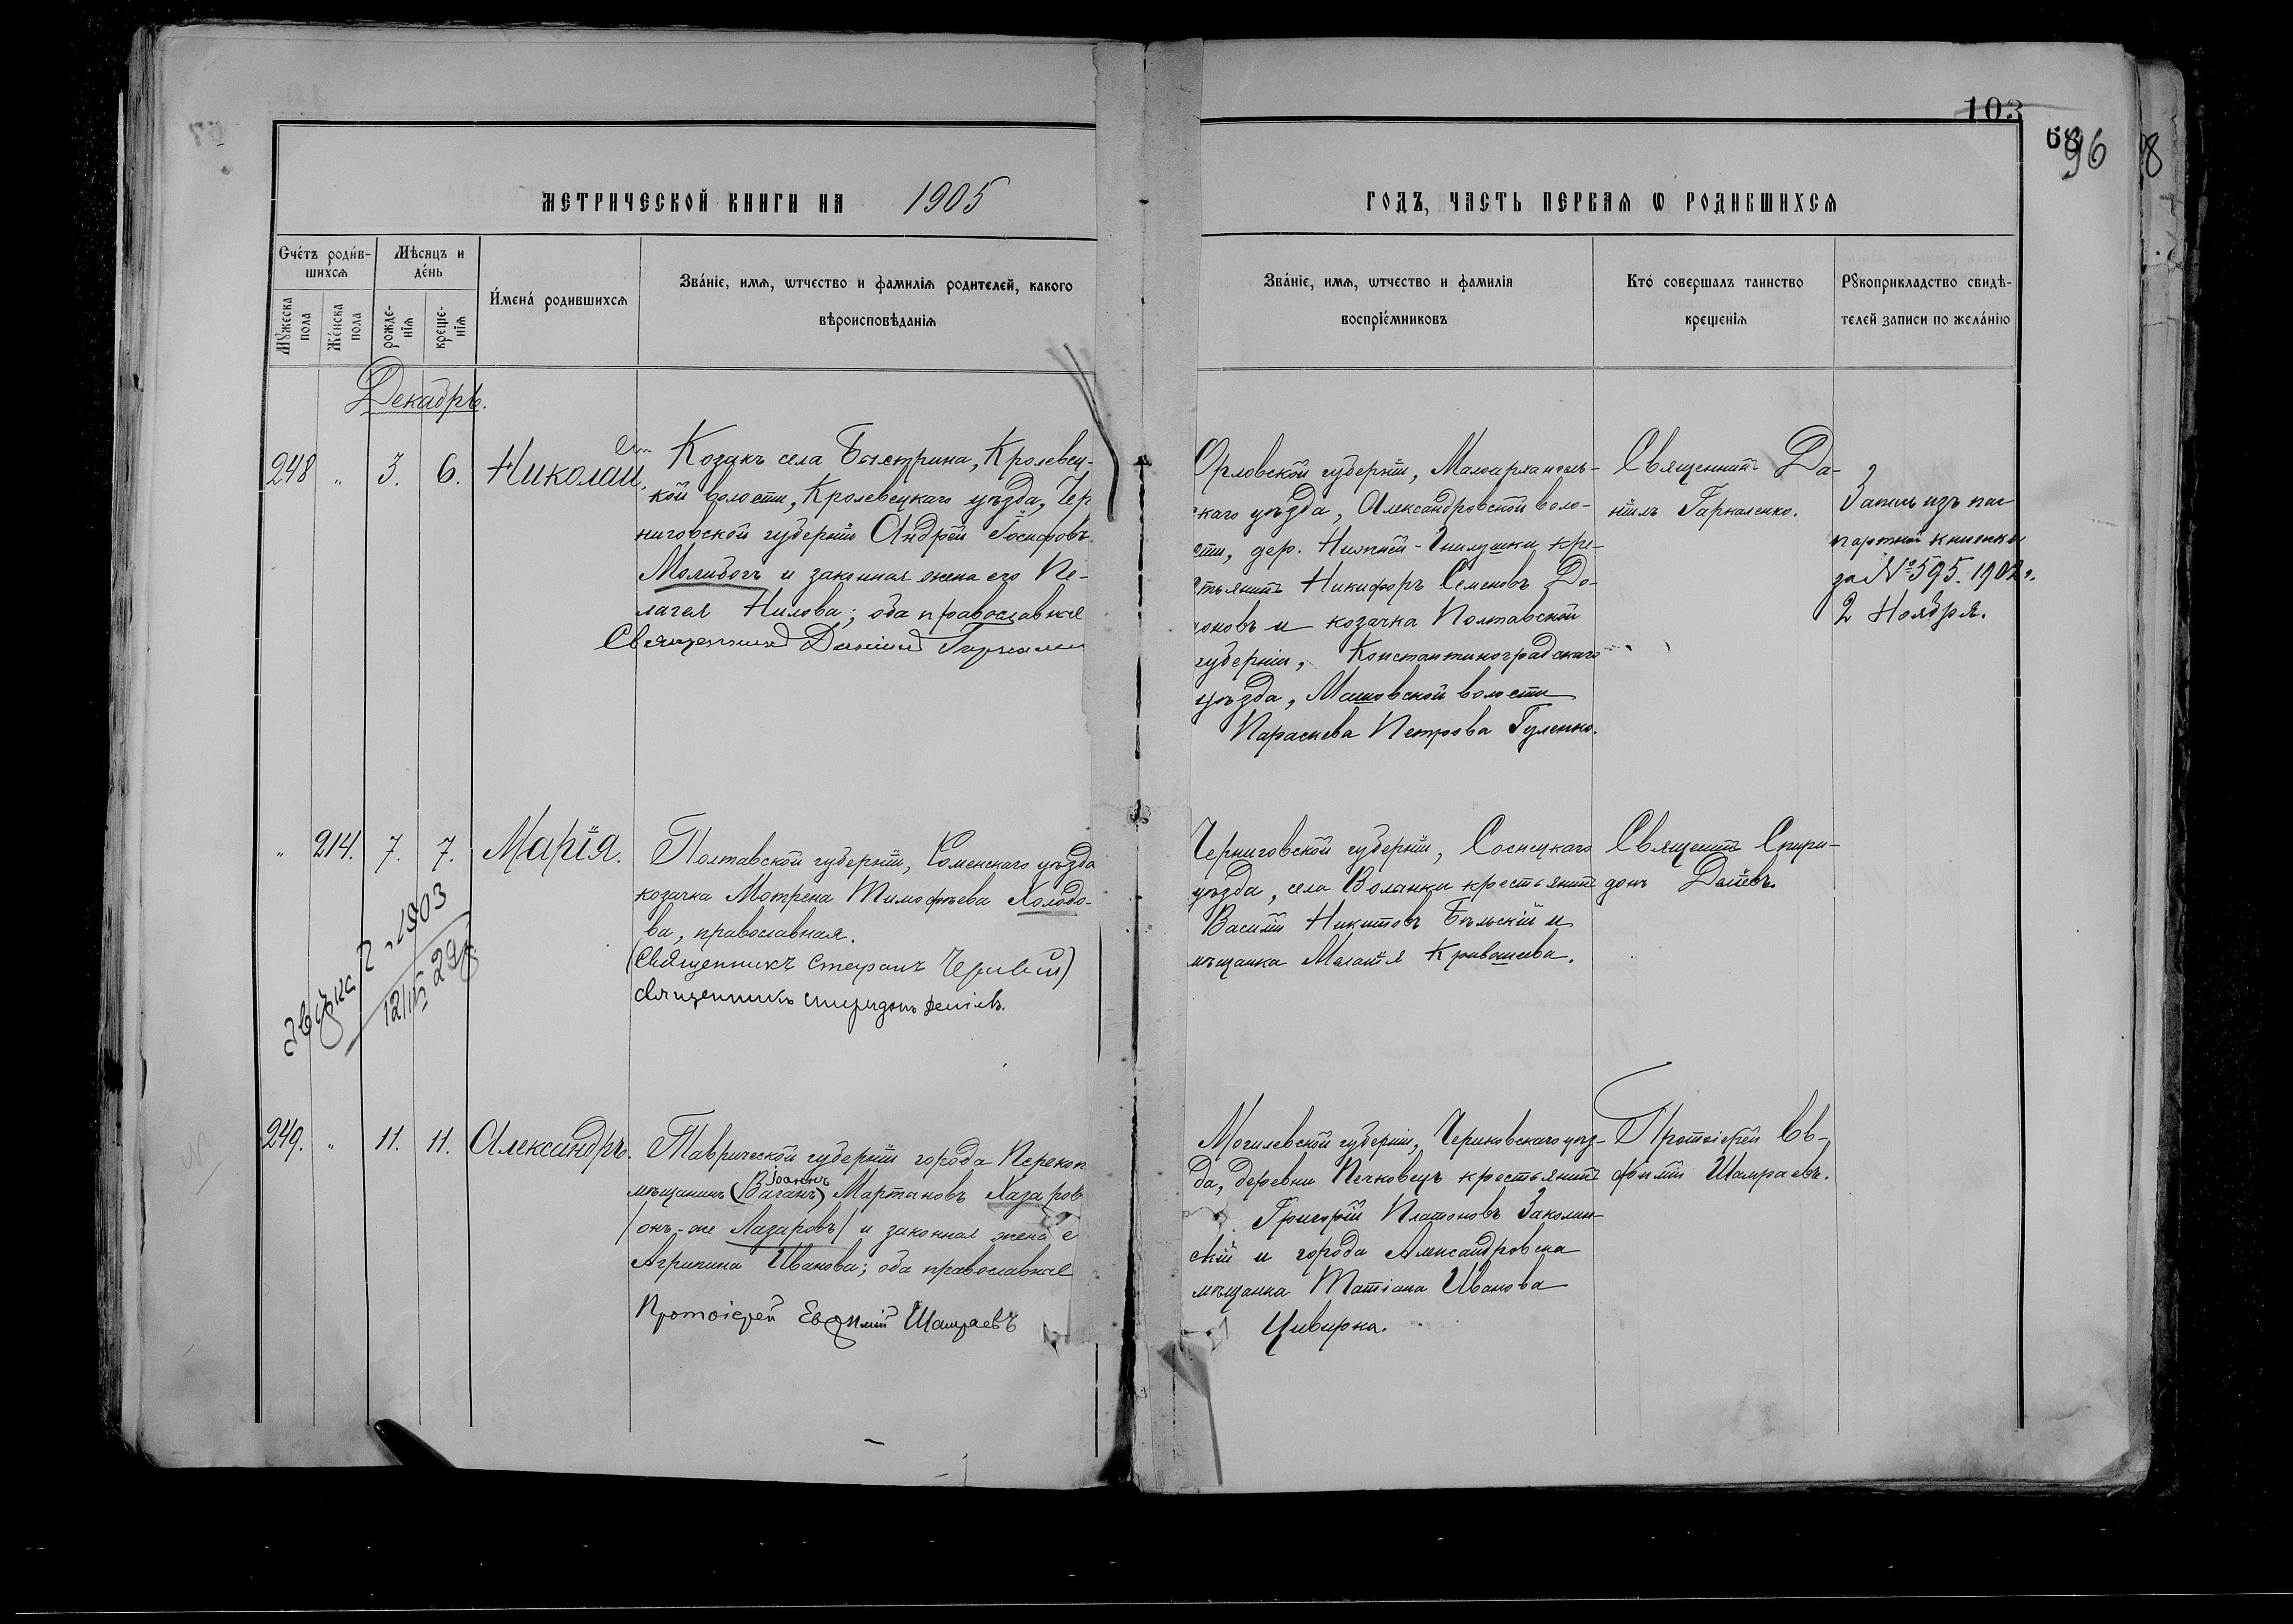 103
68
96
8
МЕТРИЧЕСКОЙ КНИГИ НА 1905
ГОДЪ, ЧАСТЬ ПЕРВАЯ Ѡ РОДИВШИХСЯ
Счéтъ роди́в-
шихся
Мѣсяцъ и
де́нь
И́мена́ родившихся
Зва́нїе, имя, ѡтчество и фамилїя родителей, какого
вѣроисповѣданїя
Мꙋжеска
пола
Же́нска
пола
рожде-
нїя
креще-
нїя
Зва́нїе, имя, ѡтчество и фамилїя
воспрїе́мниковъ
Кто́ совершалъ таинство
крещенїя
Рꙋкоприкладство свидѣ-
телей записи по жела́нїю
Декабрь.
248 " 3. 6. Николай.
Козакъ села Быстрика, Кролевец-
кой волости, Кролевецкаго уѣзда, Чер
ниговской губерніи Андрей Іосифовъ
Молибогъ и законная жена его Пе-
лагея Нилова; оба православные
Священникъ Даніилъ
Орловской губерніи, Малоархангель-
скаго уѣзда, Александровской воло-
сти, дер. Нижней-Гнилушки кре-
стьянинъ Никифоръ Семеновъ До-
роновъ и козачка Полтавской
губерніи, Константиноградскаго
уѣзда, Машовской волости
Параскева Петрова Гуленко.
Священникъ Да-
ніилъ Гаркаленко.
Запись изъ пас-
портной книжки
за № 595. 1902 г.
2 Ноября.
" 214. 7. 7. Марія.
Полтавской губерніи, Роменскаго уѣзда
козачка Мотрена Тимофѣева Холодо-
ва, православная.
(Священникъ Стефанъ
священникъ Спиридонъ
Черниговской губерніи, Сосницкаго
уѣзда, села Воланки крестьянинъ
Василій Никитовъ Бѣльскій и
мѣщанка Маланія Кривошеева.
Священникъ Спири-
донъ
1903
12/III 29
249. " 11. 11. Александръ.
Таврической губерніи города Перекоп
мѣщанинъ (Ваганъ) Мартыновъ Хазаров
Іоаннъ
(онъ-же Лазаровъ) и законная жена е
Агрипина Иванова; оба православные
Протоіерей Евфимій Шамраевъ
Могилевской губерніи, Чериковскаго уѣз-
да, деревни Печковецъ крестьянинъ
Григорій Платоновъ Заколин-
скій и города Александровска
мѣщанка Татіана Иванова
Цивирка.
Протоіерей Ев-
фимій Шамраевъ.